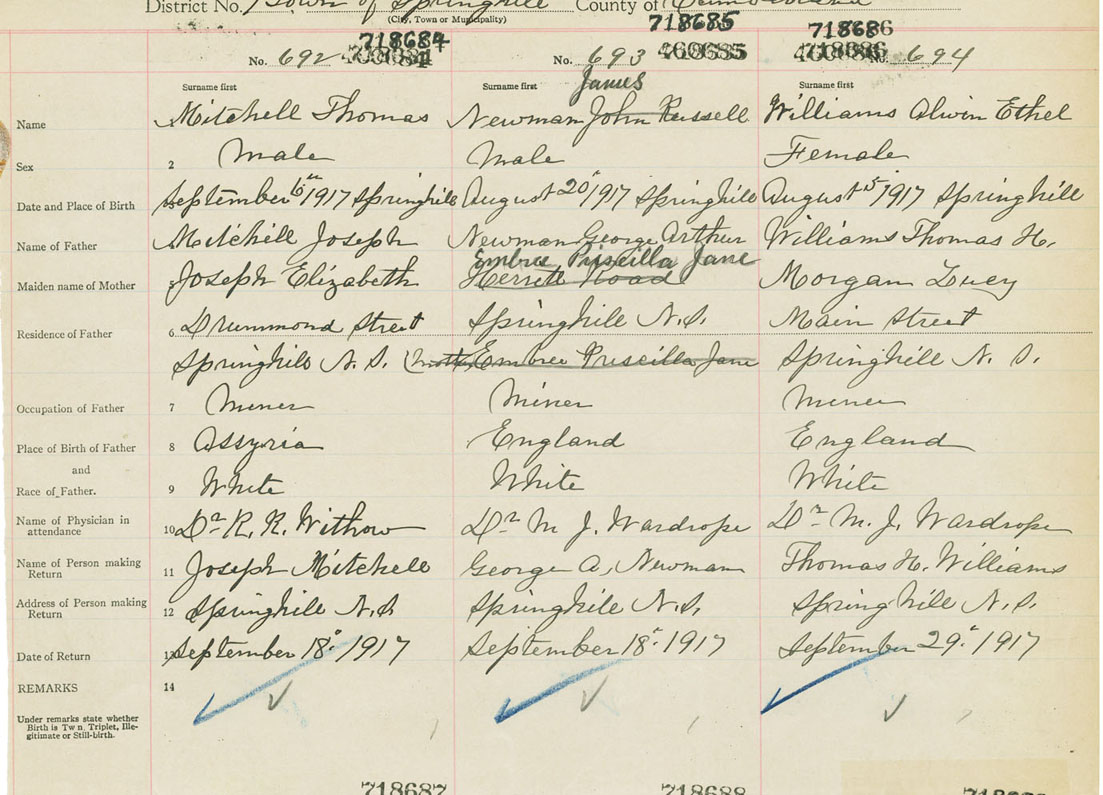 District No. Town of Springhill County of Cumberland
(City, Town or Municipality)
718684 718685 718686
No. 692 No. 693 460685 No. 694
Surname first Surname first James Surname first
Name 1 Mitchell Thomas Newman John Russell Williams Alwin Ethel
Sex 2 Male Male Female
Date and Place of Birth 3 September 16th 1917 Springhill August 20th 1917 Springhill August 15th 1917 Springhill
Name of Father Mitchell Joseph Newman George Arthur Williams Thomas H.
Embree Priscilla Jane
Maiden name of Mother 5 Joseph Elizabeth Herrett Road Morgan Lucy
Residence of Father 6 Drummond Street Springhill N.S. Main Street
Springhill N.S. (Mother Embree Priscilla Jane Springhill N.S.
Occupation of Father 7 Miner Miner Miner
Place of Birth of Father 8 Assyria England England
and
Race of Father. 9 White White White
Name of Physician in attendance 10 Dr R. K. Withrow Dr M. J. Wardrope Dr M. J. Wardrope
Name of Person making Return 11 Joseph Mitchell George A. Newman Thomas H. Williams
Address of Person making Return 12 Springhill N.S. Springhill N.S. Springhill N.S.
Date of Return 13 September 18" 1917 September 18" 1917 September 29" 1917
REMARKS 14
Under remarks state whether
Birth is Tw n, Triplet, Ille-
gitimate or Still-birth.
718687 718688